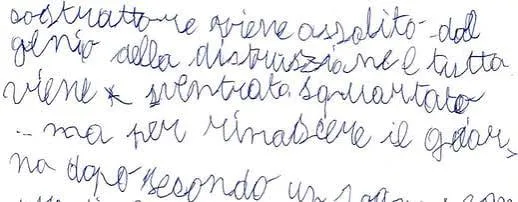 sostrattore viene assalito dal
genio della distruzzione e tutta
viene sventrata squartato
... ma per rinascere il gior
no dopo secondo un